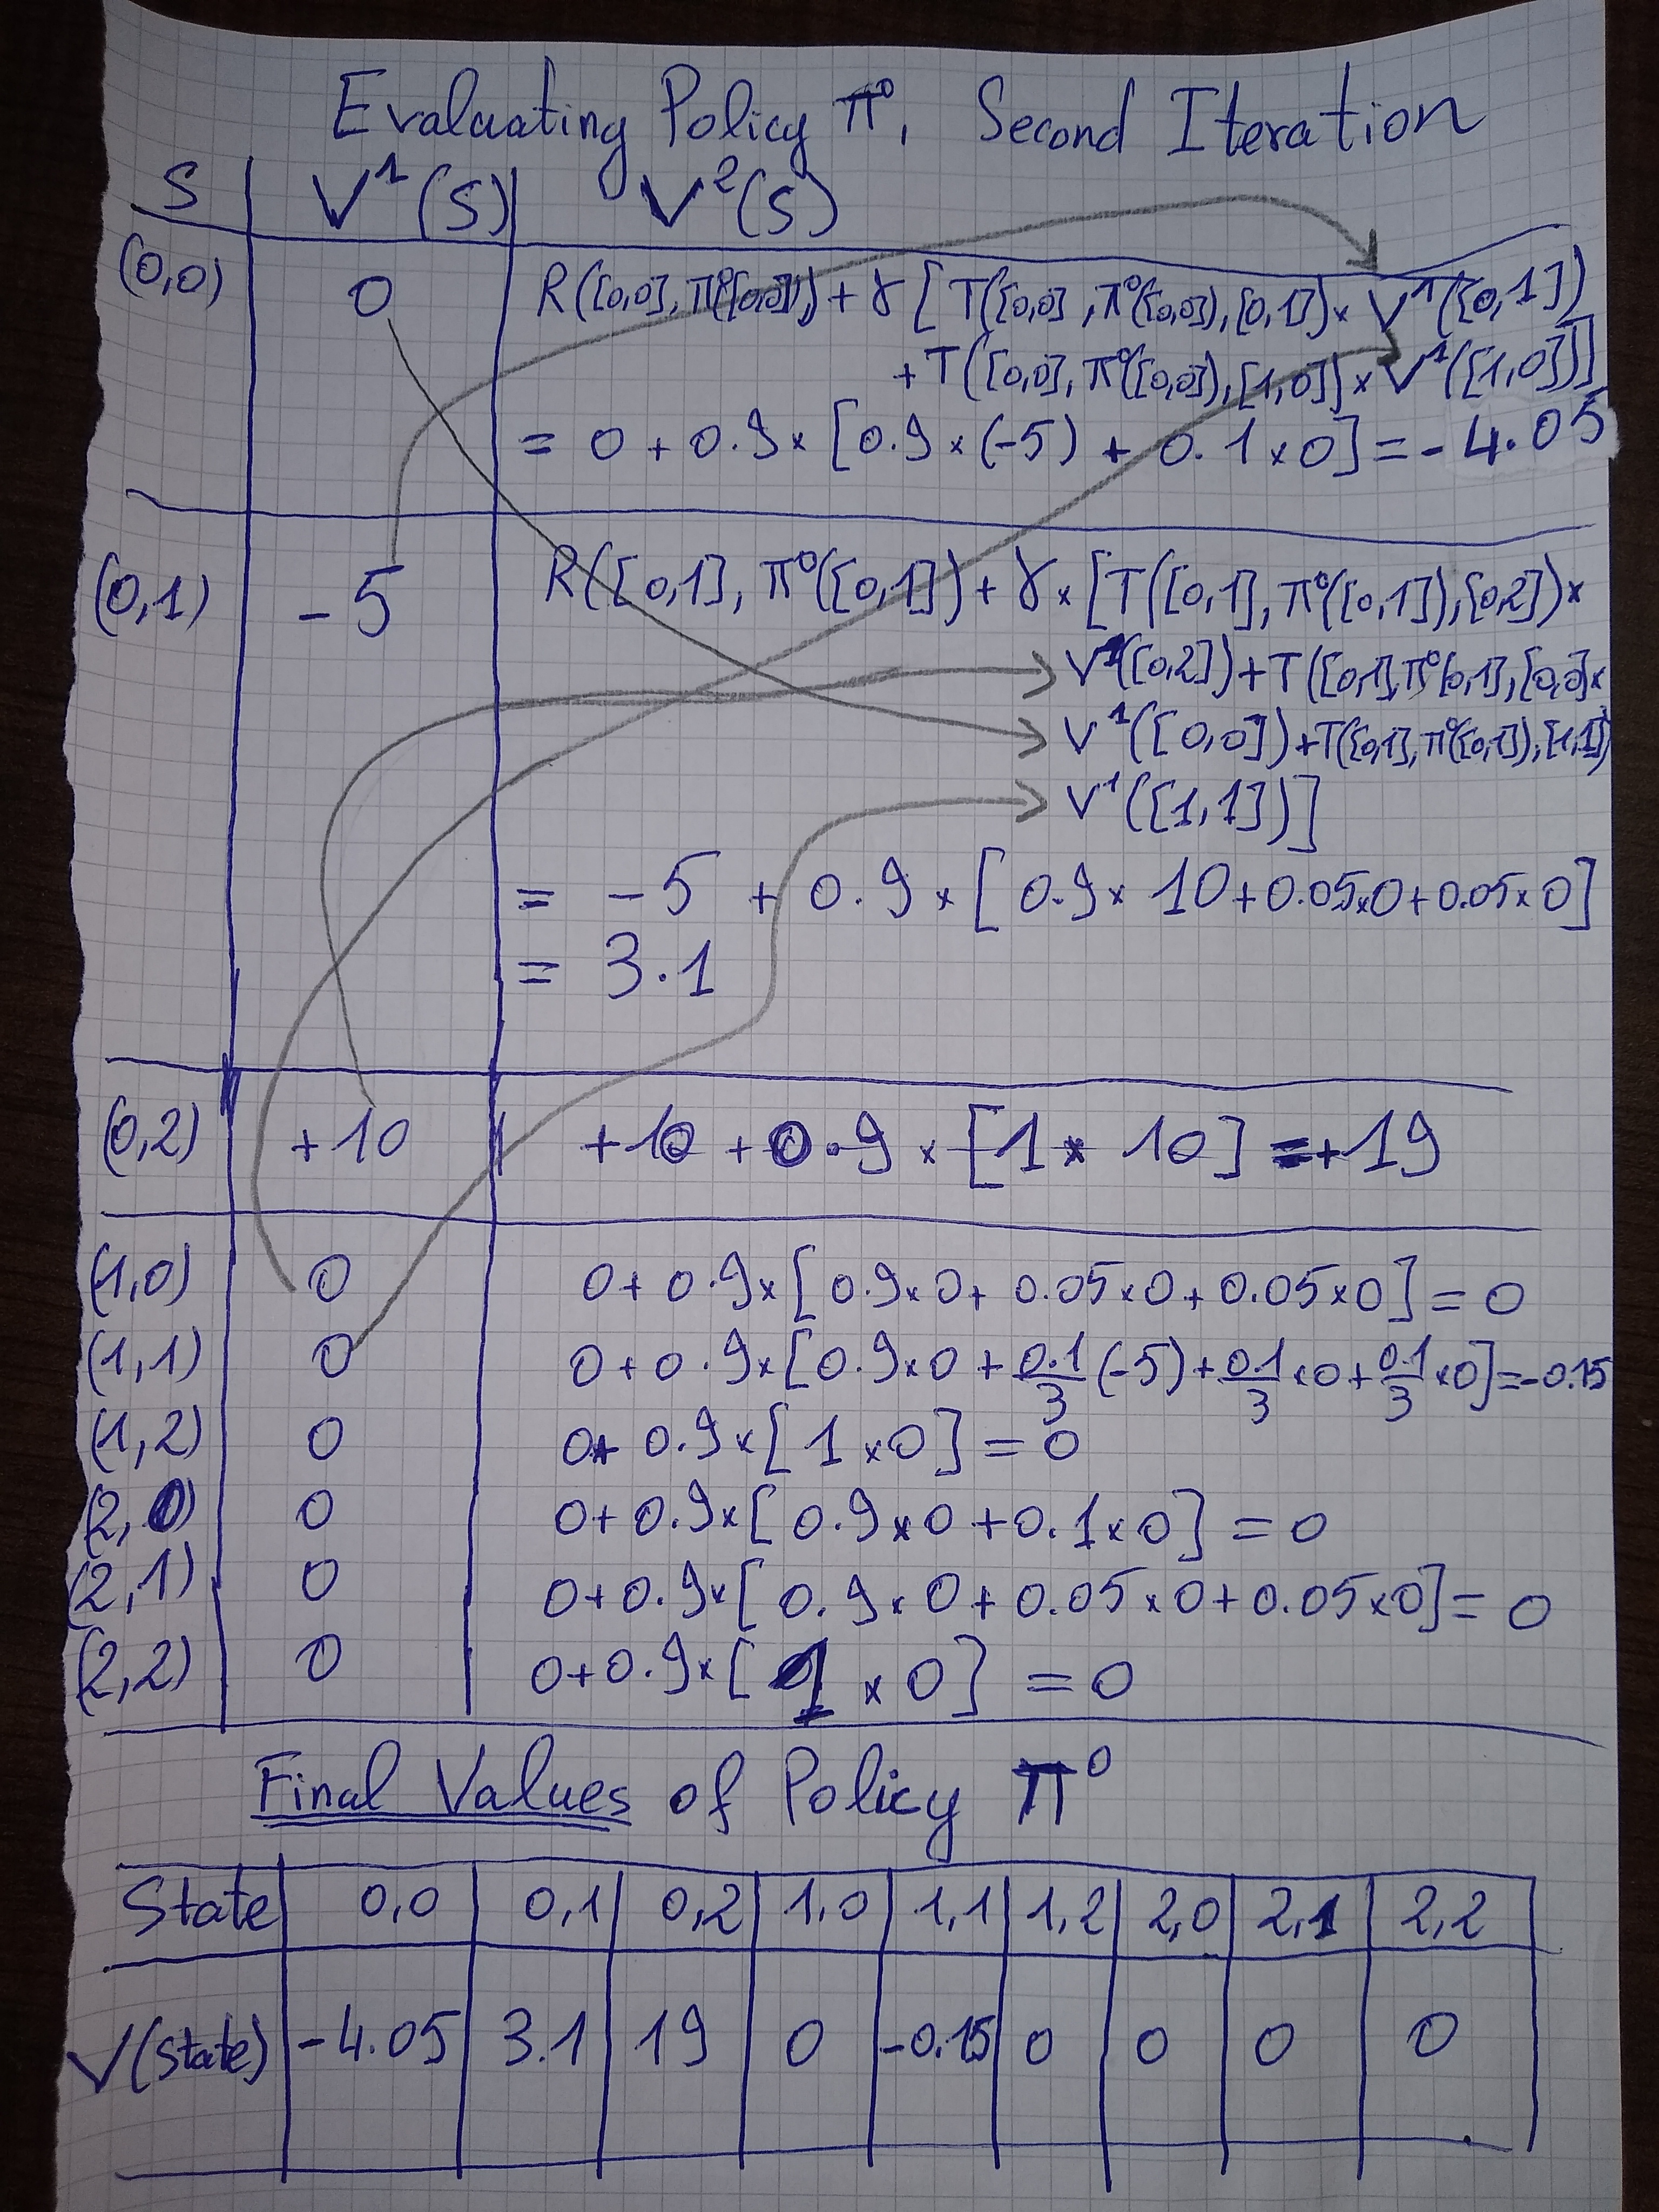 Evaluating Policy π⁰, Second Iteration
S V¹(S) V²(S)
(0,0) 0 R([0,0], π⁰([0,0])) + γ [T([0,0], π⁰([0,0]), [0,1]) × V¹([0,1])
+ T([0,0], π⁰([0,0]), [1,0]] × V¹([1,0])]
= 0 + 0.9 × [0.9 × (-5) + 0.1 × 0] = -4.05
(0,1) -5 R([0,1], π⁰([0,1]) + γ × [T([0,1], π⁰([0,1]), [0,2]) ×
V¹([0,2]) + T([0,1], π⁰(0,1], [0,0] ×
V¹([0,0]) + T([0,1], π⁰([0,1]), [1,1])
V¹([1,1])]
= -5 + 0.9 × [0.9 × 10 + 0.05×0 + 0.05×0]
= 3.1
(0,2) +10 +10 + 0.9 × [1 × 10] = +19
(1,0) 0 0 + 0.9 × [0.9×0 + 0.05×0 + 0.05×0] = 0
(1,1) 0 0 + 0.9 × [0.9×0 + 0.1/3 (-5) + 0.1/3 ×0 + 0.1/3 ×0] = -0.15
(1,2) 0 0 + 0.9 × [1 × 0] = 0
(2,0) 0 0 + 0.9 × [0.9 × 0 + 0.1 × 0] = 0
(2,1) 0 0 + 0.9 × [0.9 × 0 + 0.05 × 0 + 0.05 × 0] = 0
(2,2) 0 0 + 0.9 × [1 × 0] = 0
Final Values of Policy π⁰
State 0,0 0,1 0,2 1,0 1,1 1,2 2,0 2,1 2,2
V(state) -4.05 3.1 19 0 -0.15 0 0 0 0